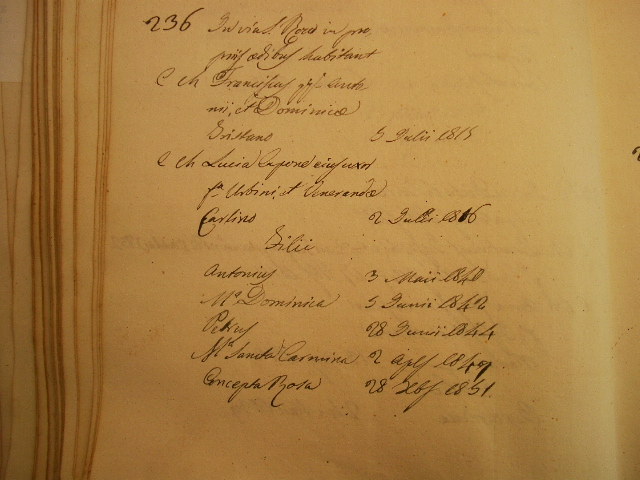 236 In via S. Rocci in pro
priis ædibus habitant
C Ch Franciscus q.m Anto
nii, et Dominicæ
Tristano 5 Julii 1815
C Ch Lucia Capone ejus uxor
f.a Urbini, et Venerandæ
Carlino 2 Julii 1816
Filii
Antonius 3 Maii 1840
M.a Dominica 5 Junii 1842
Petrus 28 Junii 1844
M.a Sancta Carmina 2 1849
Concepta Rosa 28 1851.